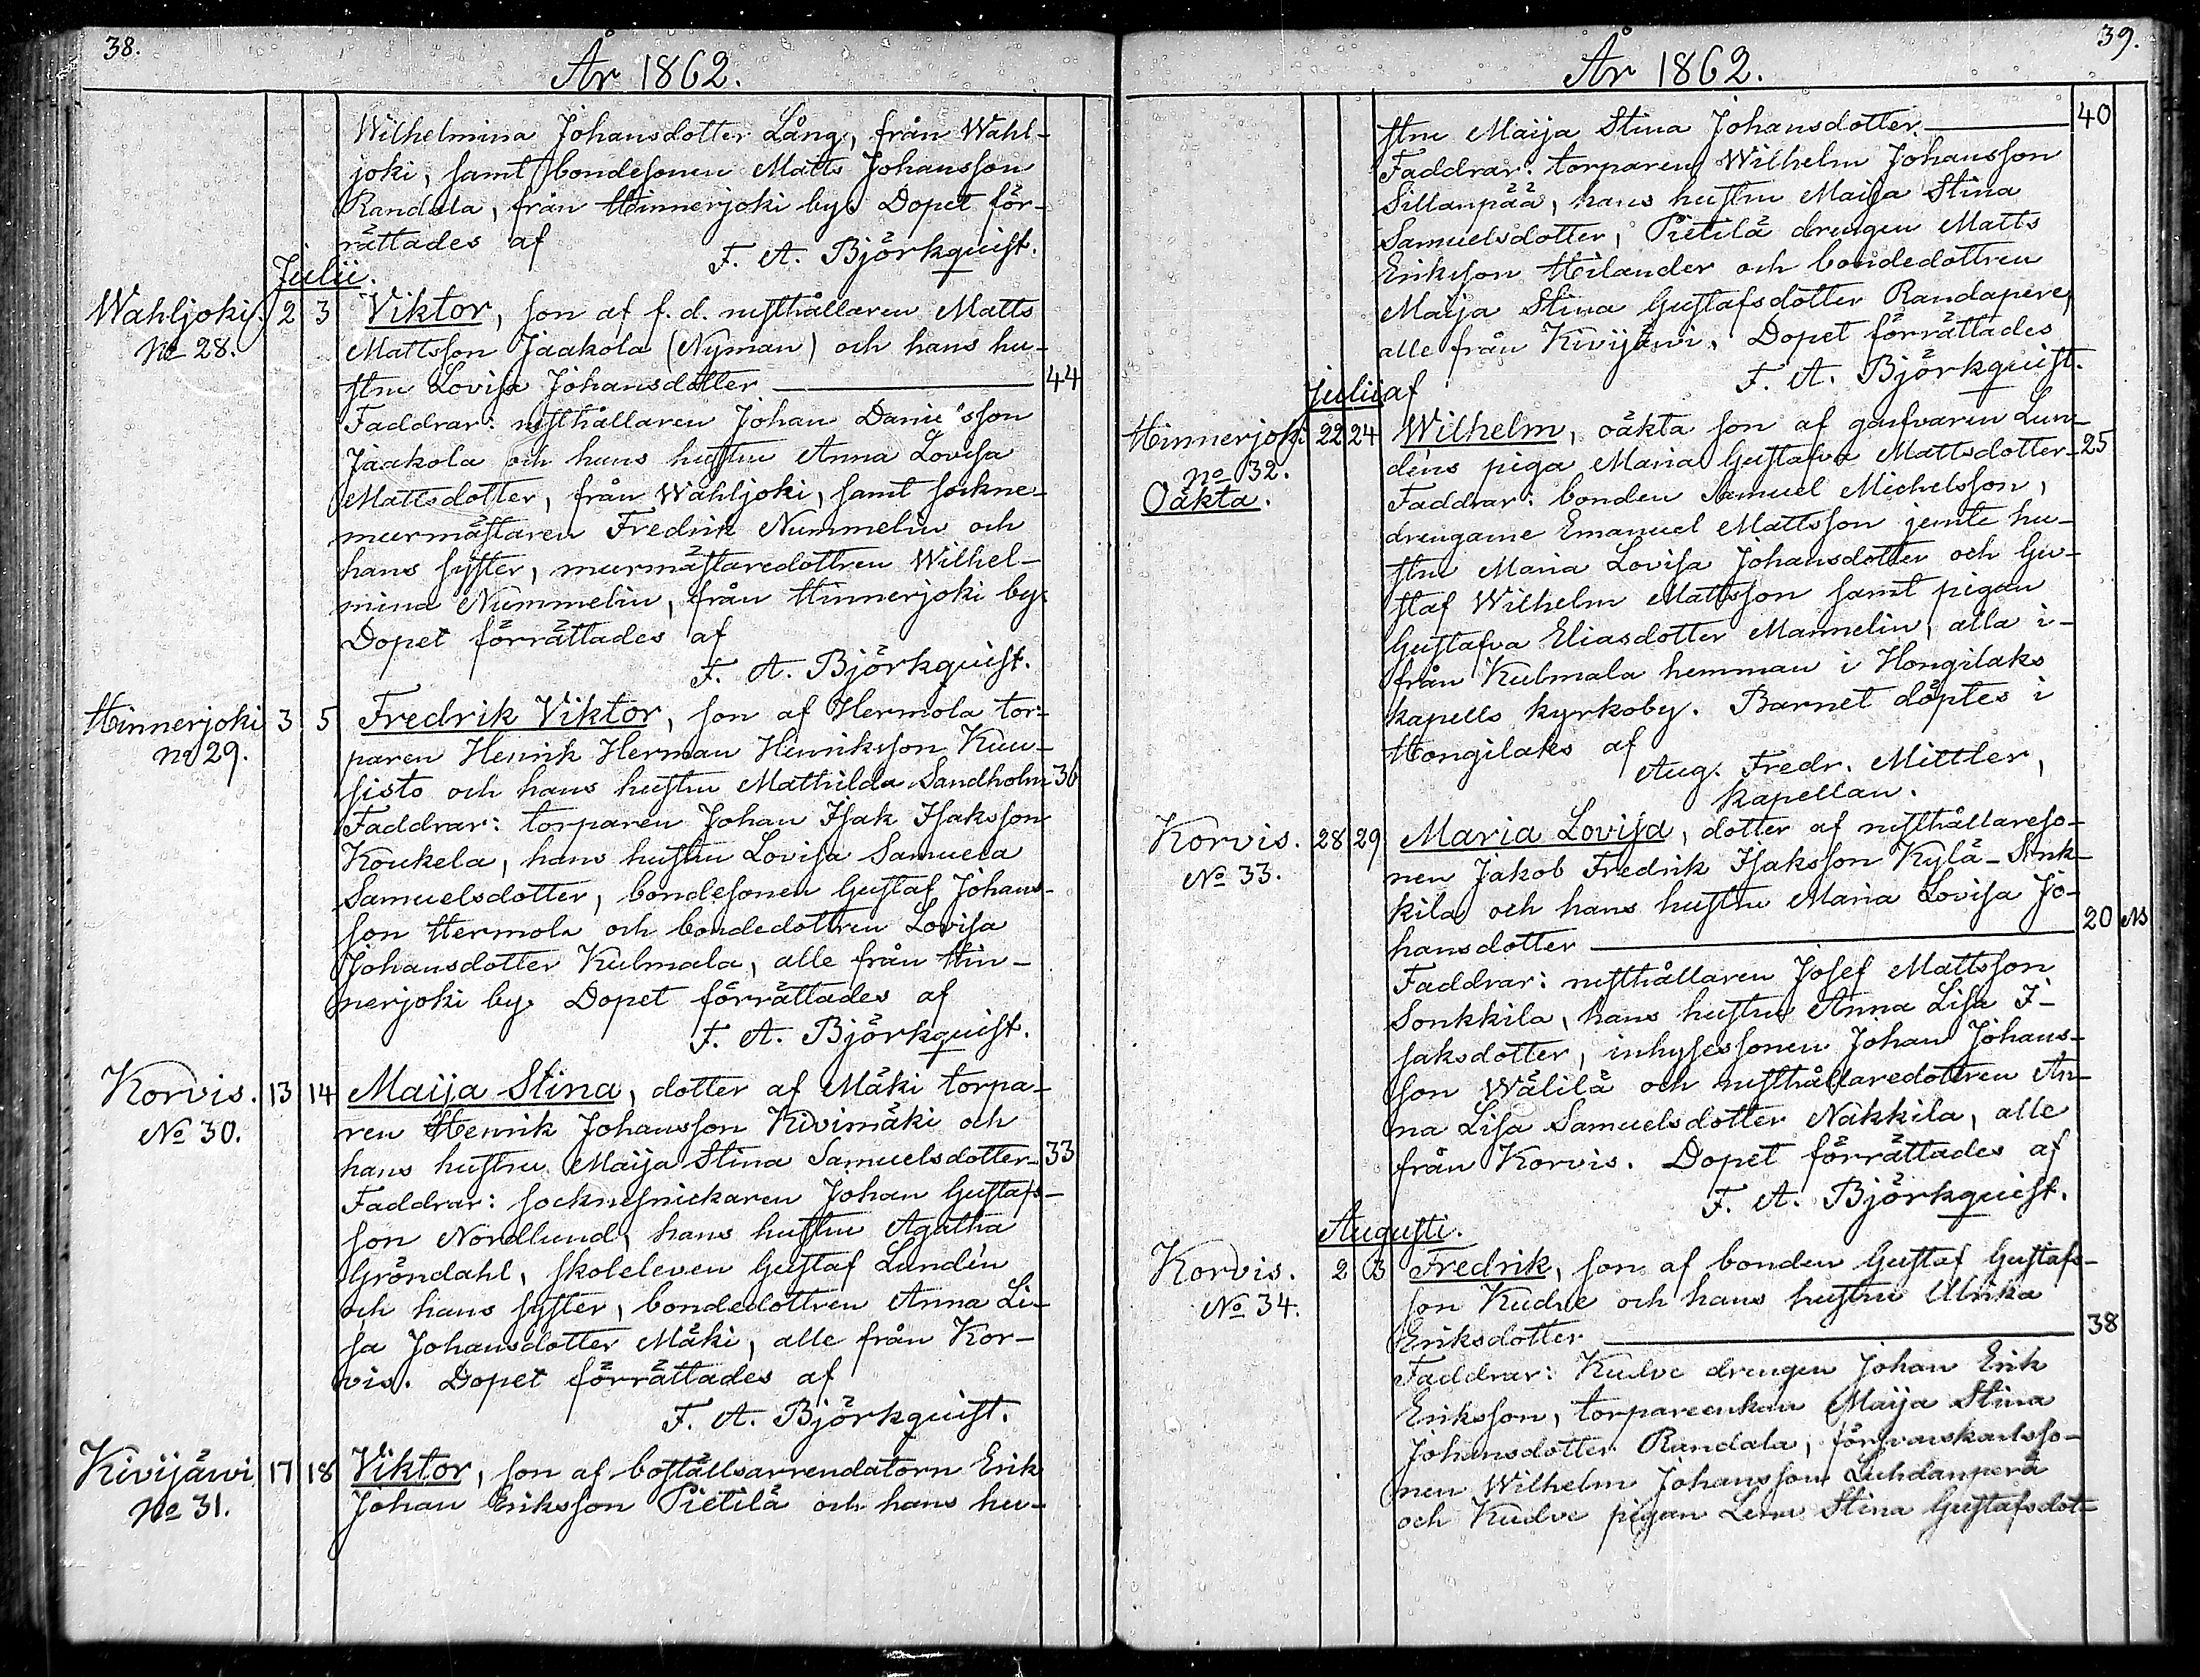 38.
År 1862.
Wilhelmina Johansdotter Lång, från Wahl-
joki, samt bondesonen Matts Johansson
Randala, från Hinnerjoki by. Dopet för-
rättades af
F. A. Björkquist.
Julii.
Wahljoki. 2 3 Viktor, son af f. d. rusthållaren Matts
No 28. Mattsson Jaakola (Nyman) och hans hu-
stru Lovisa Johansdotter 44
Faddrar: rusthållaren Johan Danielsson
Jaakola och hans hustru Anna Lovisa
Mattsdotter, från Wahljoki, samt sockne-
murmästaren Fredrik Nummelin och
hans syster, murmästaredottren Wilhel-
mina Nummelin, från Hinnerjoki by.
Dopet förrättades af
F. A. Björkquist.
Hinnerjoki 3 5 Fredrik Viktor, son af Hermola tor-
No 29. paren Henrik Herman Henriksson Kuu-
sisto och hans hustru Mathilda Sandholm 36
Faddrar: torparen Johan Isak Isaksson
Koukela, hans hustru Lovisa Samuela
Samuelsdotter, bondesonen Gustaf Johans-
son Hermola och bondedottren Lovisa
Johansdotter Kulmala, alle från Hin-
nerjoki by. Dopet förrättades af
F. A. Björkquist.
Korvis. 13 14 Maija Stina, dotter af Mäki torpa-
No 30. ren Henrik Johansson Kivimäki och
hans hustru Maija Stina Samuelsdotter 33
Faddrar: socknesnickaren Johan Gustafs-
son Nordlund, hans hustru Agatha
Gröndahl, skoleleven Gustaf Lundén
och hans syster, bondedottren Anna Li-
sa Johansdotter Mäki, alle från Kor-
vis. Dopet förrättades af
F. A. Björkquist.
Kivijärvi 17 18 Viktor, son af boställsarrendatorn Erik
No 31. Johan Eriksson Pietilä och hans hu-
39.
År 1862.
stru Maija Stina Johansdotter 40
Faddrar: torparen Wilhelm Johansson
Sillanpää, hans hustru Maija Stina
Samuelsdotter, Pietilä drengen Matts
Eriksson Hilander och bondedottren
Maija Stina Gustafsdotter Randapere,
alle från Kivijärvi. Dopet förrättades
Julii af F. A. Björkquist.
Hinnerjoki 22 24 Wilhelm, oäkta son af garfvaren Lun-
No 32. déns piga Maria Gustafva Mattsdotter 25
Oäkta. Faddrar: bonden Samuel Michelsson,
drengarne Emanuel Mattsson jemte hu-
stru Maria Lovisa Johansdotter och Gu-
staf Wilhelm Mattsson samt pigan
Gustafva Eliasdotter Mannelin, alla i-
från Kulmala hemman i Hongilaks
kapells kyrkoby. Barnet döptes i
Hongilaks af
Aug. Fredr. Mittler,
kapellan.
Korvis. 28 29 Maria Lovisa, dotter af rusthållareso-
No 33. nen Jakob Fredrik Isaksson Kylä-Sonk-
kila och hans hustru Maria Lovisa Jo-
hansdotter 20
Faddrar: rusthållaren Josef Mattsson
Sonkkila, hans hustru Anna Lisa I-
saksdotter, inhysessonen Johan Johans-
son Wälilä och rusthållaredottren An-
na Lisa Samuelsdotter Nakkila, alle
från Korvis. Dopet förrättades af
F. A. Björkquist.
Augusti.
Korvis. 2 3 Fredrik, son af bonden Gustaf Gustafs-
No 34. son Kudve och hans hustru Ulrika
Eriksdotter 38
Faddrar: Kudve drengen Johan Erik
Eriksson, torpareenkan Maija Stina
Johansdotter Randala, försvarskarlsso-
nen Wilhelm Johansson Luhdanperä
och Kudve pigan Lena Stina Gustafsdot-